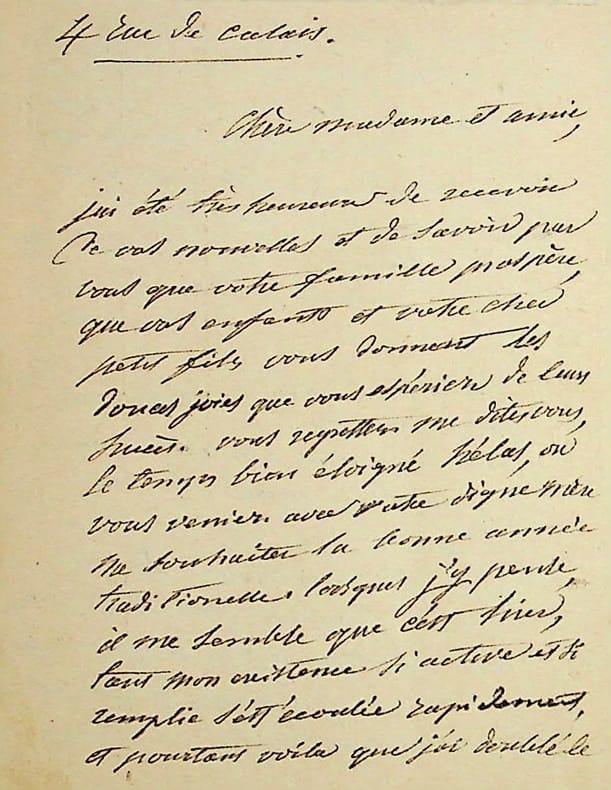 4 rue de calais.
Chère madame et amie,
j'ai été très heureux de recevoir
de vos nouvelles et de savoir par
vous que votre famille prospère,
que vos enfants et votre cher
petit fils vous donnent les
douces joies que vous espériez de leurs
succès. vous regrettez me dites vous,
le temps bien éloigné hélas, où
vous veniez avec votre digne mère
me souhaiter la bonne année
traditionelle. lorsque j'y pense,
il me semble que c'est hier,
tant mon existence si active et si
remplie s'est écoulée rapidement,
et pourtant voila que j'ai doublé le